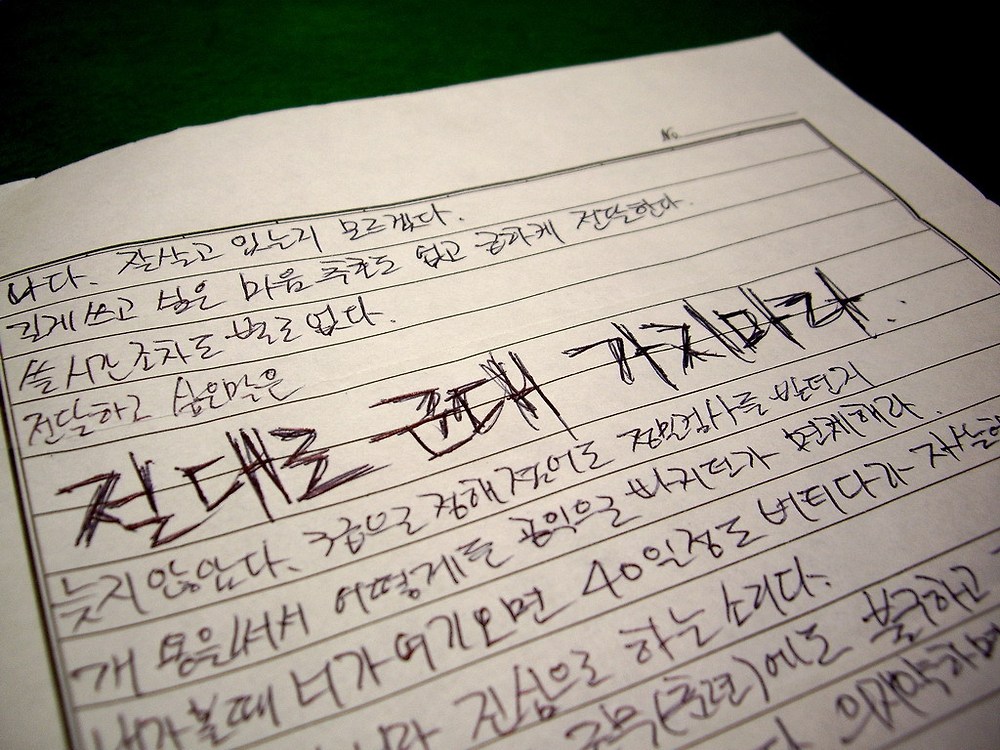 No.
나다. 잘살고 있는지 모르겠다.
길게 쓰고 싶은 마음 추호도 없고 급하게 전달한다.
쓸 시간 조차도 별로 없다.
전달하고 싶은말은
절대로 군대 가지마라.
늦지 않았다. 3급으로 정해졌어도 정밀검사를 받던지
개 몽을써서 어떻게든 공익으로 빠지던가 면제해라.
내가볼때 너가 여기오면 40일정도 버티다가 자살
진심으로 하는 소리다.
(훈련)에도 불구하고
의지박약하면